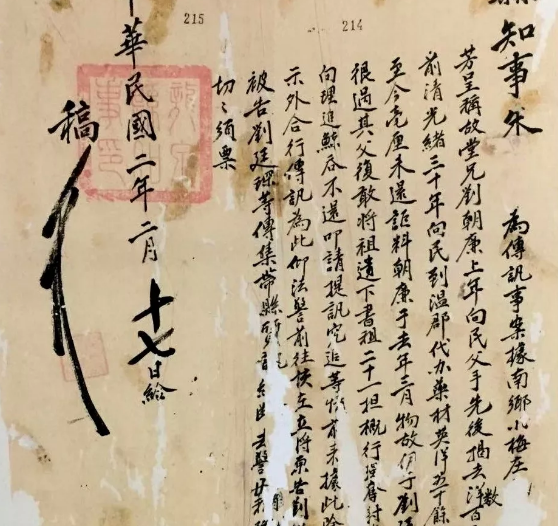 知事朱
為傳訊事案據南鄉小梅庄
芳呈稱故堂兄劉朝廉上年向民父手先後揭去洋百
數
前清光緒三十年向民到温郡代办藥材英洋五十餘
至今毫厘未還詎料朝廉于去年二月物故伊子劉
很過其父後敢將祖遺下書租二十一担概行
向理進鯨吞不還叩請提訊究追等情前来據此除
示外合行傳訊為此仰法警前往俟左立將原告劉
被告劉廷琛等傳集帶縣
切切須票
中華民國二年二月十七日給
稿
214
215